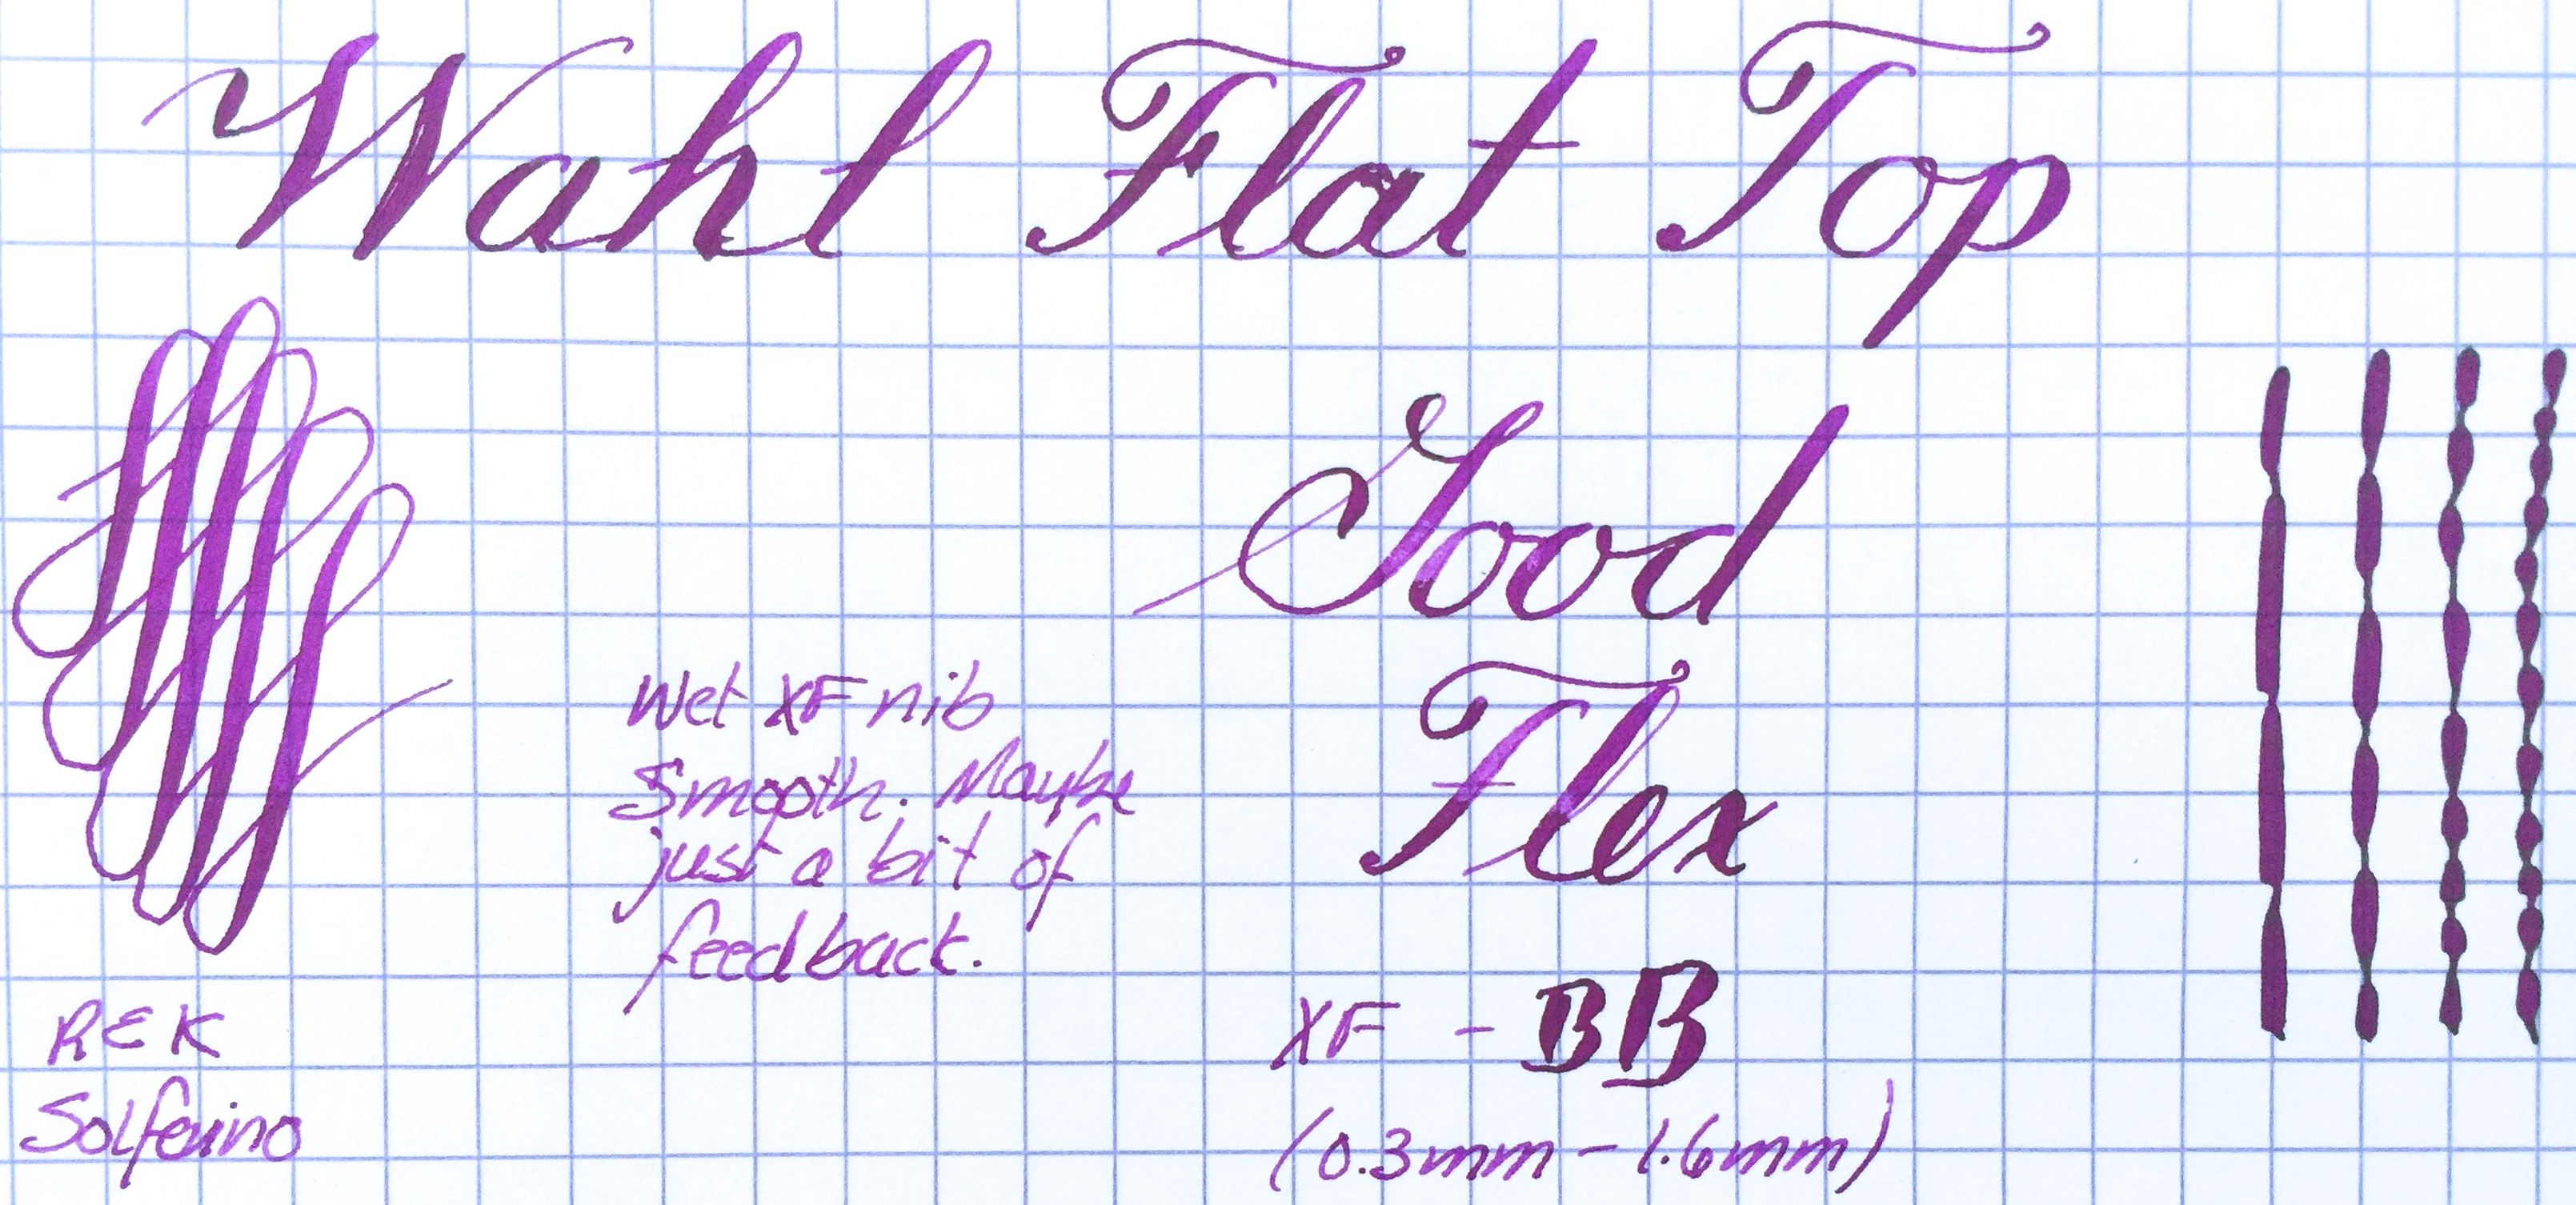 Wahl Flat Top
Good
Flex
Wet XF nib
Smooth. Maybe
just a bit of
feedback.
XF - BB
(0.3mm - 1.6mm)
REK
Solferino